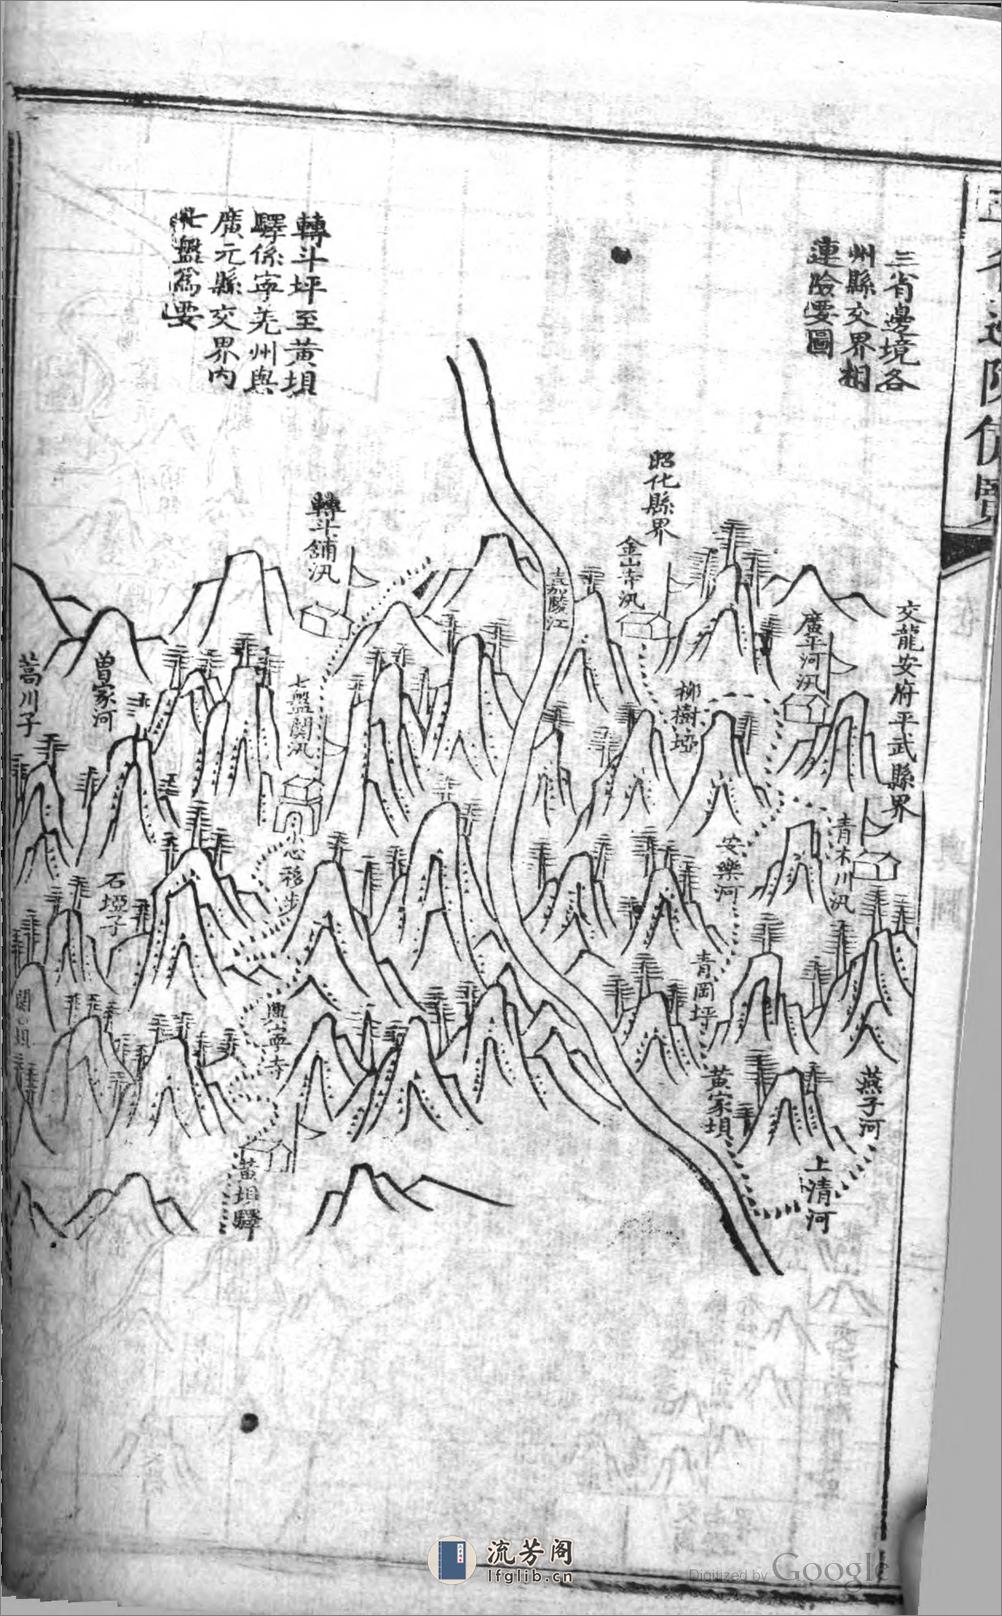 三省邊境各
州縣交界相
連險要圖
交龍安府平武縣界
廣平河汛
青木川汛
燕子河
上清河
昭化縣界
金山寺汛
柳樹埡
安樂河
青岡坪
黃家壩
嘉陵江
轉斗坪至黃壩
驛係寧羌州與
廣元縣交界內
七盤爲要
轉斗舖汛
七盤關汛
小心移步
興寧寺
黃壩驛
曾家河
石埡子
蒿川子
流芳阁
lfglib.cn
Digitized by Google